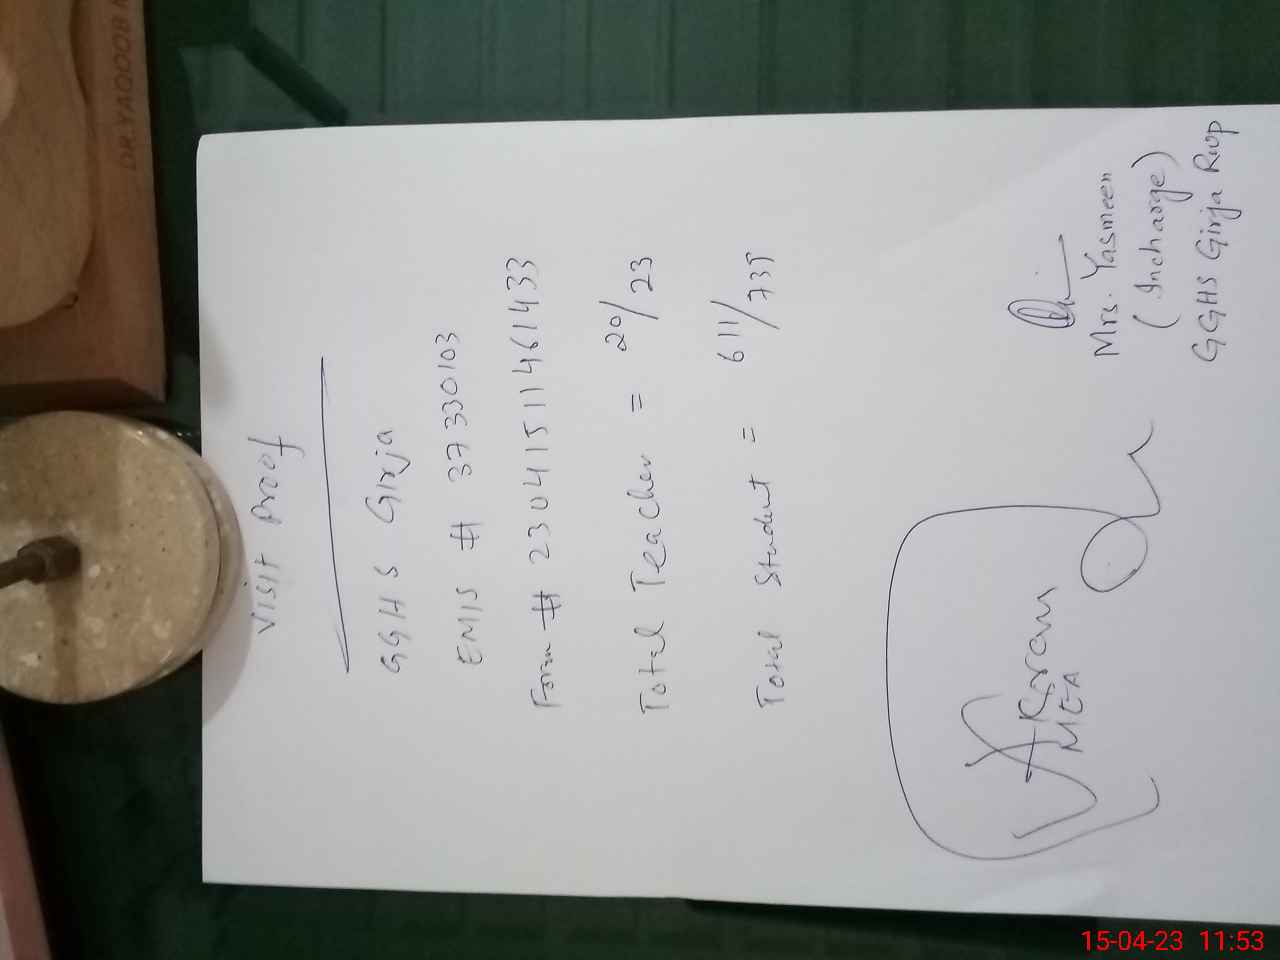 DR.YAQOOB
Visit Proof
GGHS Girja
EMIS # 37330103
Form # 23041511461433
Total Teacher = 20/23
Total Student = 611/735
Akram
MEA
Mrs. Yasmeen
(Incharge)
GGHS Girja Rwp
15-04-23 11:53